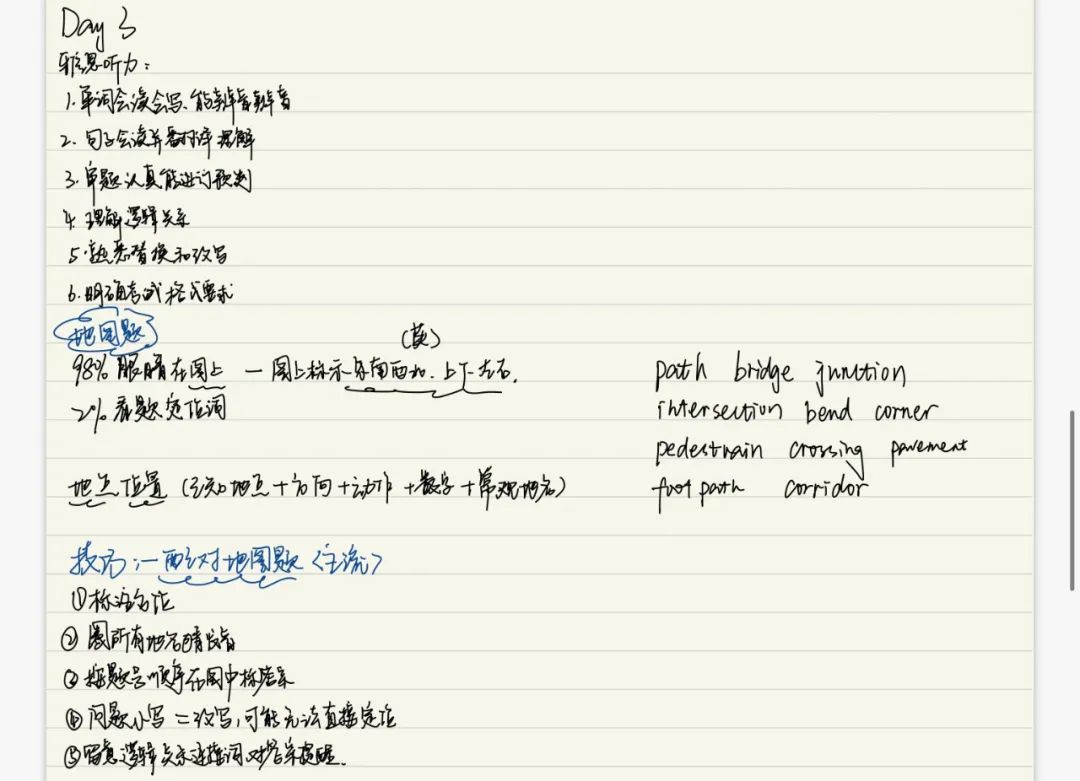 Day 3
雅思听力：
1. 单词会读会写、能辨音辨音
2. 句子会读并翻译理解
3. 审题认真能进行预判
4. 理解逻辑关系
5. 熟悉替换和改写
6. 明确考试格式要求
地图题
(英)
98% 眼睛在图上 — 图上标示东南西北、上下左右.
2% 看题定位词
地点位置 (已知地点+方向+动作+数字+常规地名)
path bridge junction
intersection bend corner
pedestrain crossing pavement
footpath corridor
技巧:一 配对地图题 (主流)
①标注方位
② 圈所有地名
③ 按题号顺序在图中标答案
④ 问题小写 = 改写,可能无法直接定位
⑤留意逻辑关系连接词.对答案提醒.